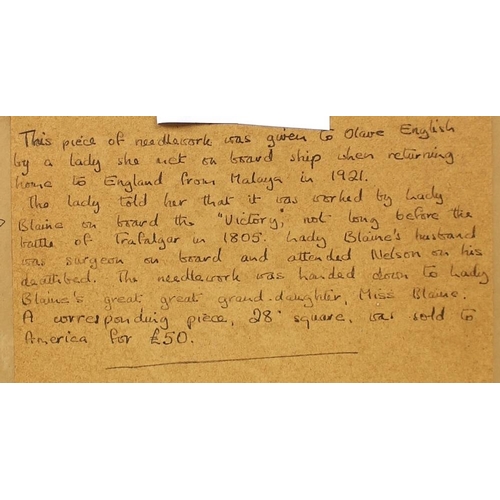 This piece of needlework was given to Olave English
by a lady she met on board ship when returning
home to England from Malaya in 1921.
The lady told her that it was worked by Lady
Blaine on board the "Victory", not long before the
battle of Trafalgar in 1805. Lady Blaine's husband
was surgeon on board and attended Nelson on his
deathbed. The needlework was handed down to Lady
Blaine's great great grand-daughter, Miss Blaine.
A corresponding piece, 28" square, was sold to
America for £50.